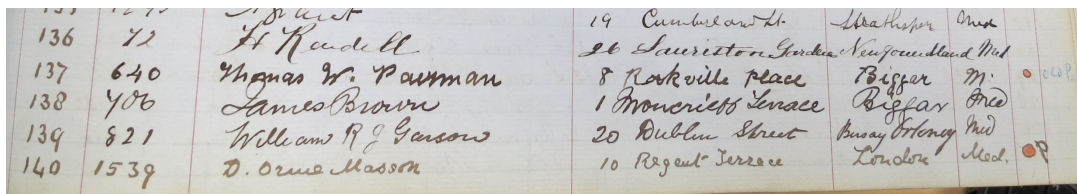 19 Cumberland St. Strathspey Med
136 72 H Rendell 26 Lauriston Gardens Newfoundland Med
137 640 Thomas W. Pairman 8 Rockville Place Biggar M.
138 706 James Brown 1 Moncrieff Terrace Biggar Med
139 821 William R J Garson 20 Dublin Street Birsay Orkney Med
140 1539 D. Orme Masson 10 Regent Terrace London Med. P